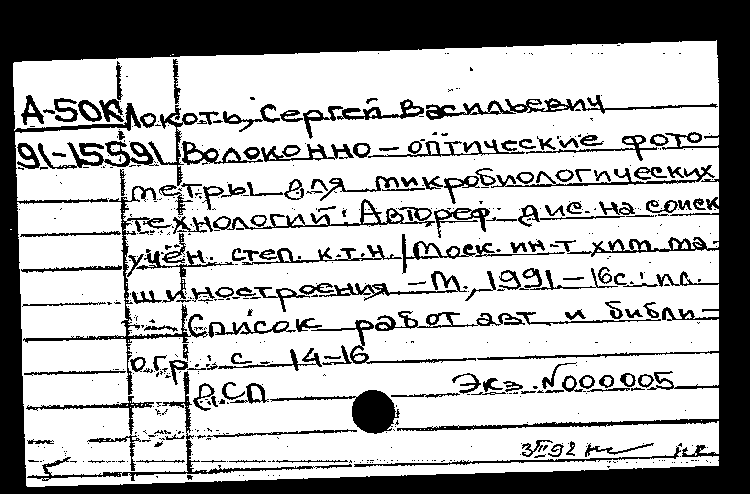 А-50К Локоть, Сергей Васильевич
91-15591 Волоконно-оптические фото-
метры для микробиологических
технологий: Автореф. дис. на соиск
учён. степ. к.т.н. / Моск. ин-т хим. ма-
шиностроения - М., 1991. - 16с.: ил.
Список работ авт. и библи-
огр.: с. 14-16
ДСП Экз. №000005
3 III 92
5